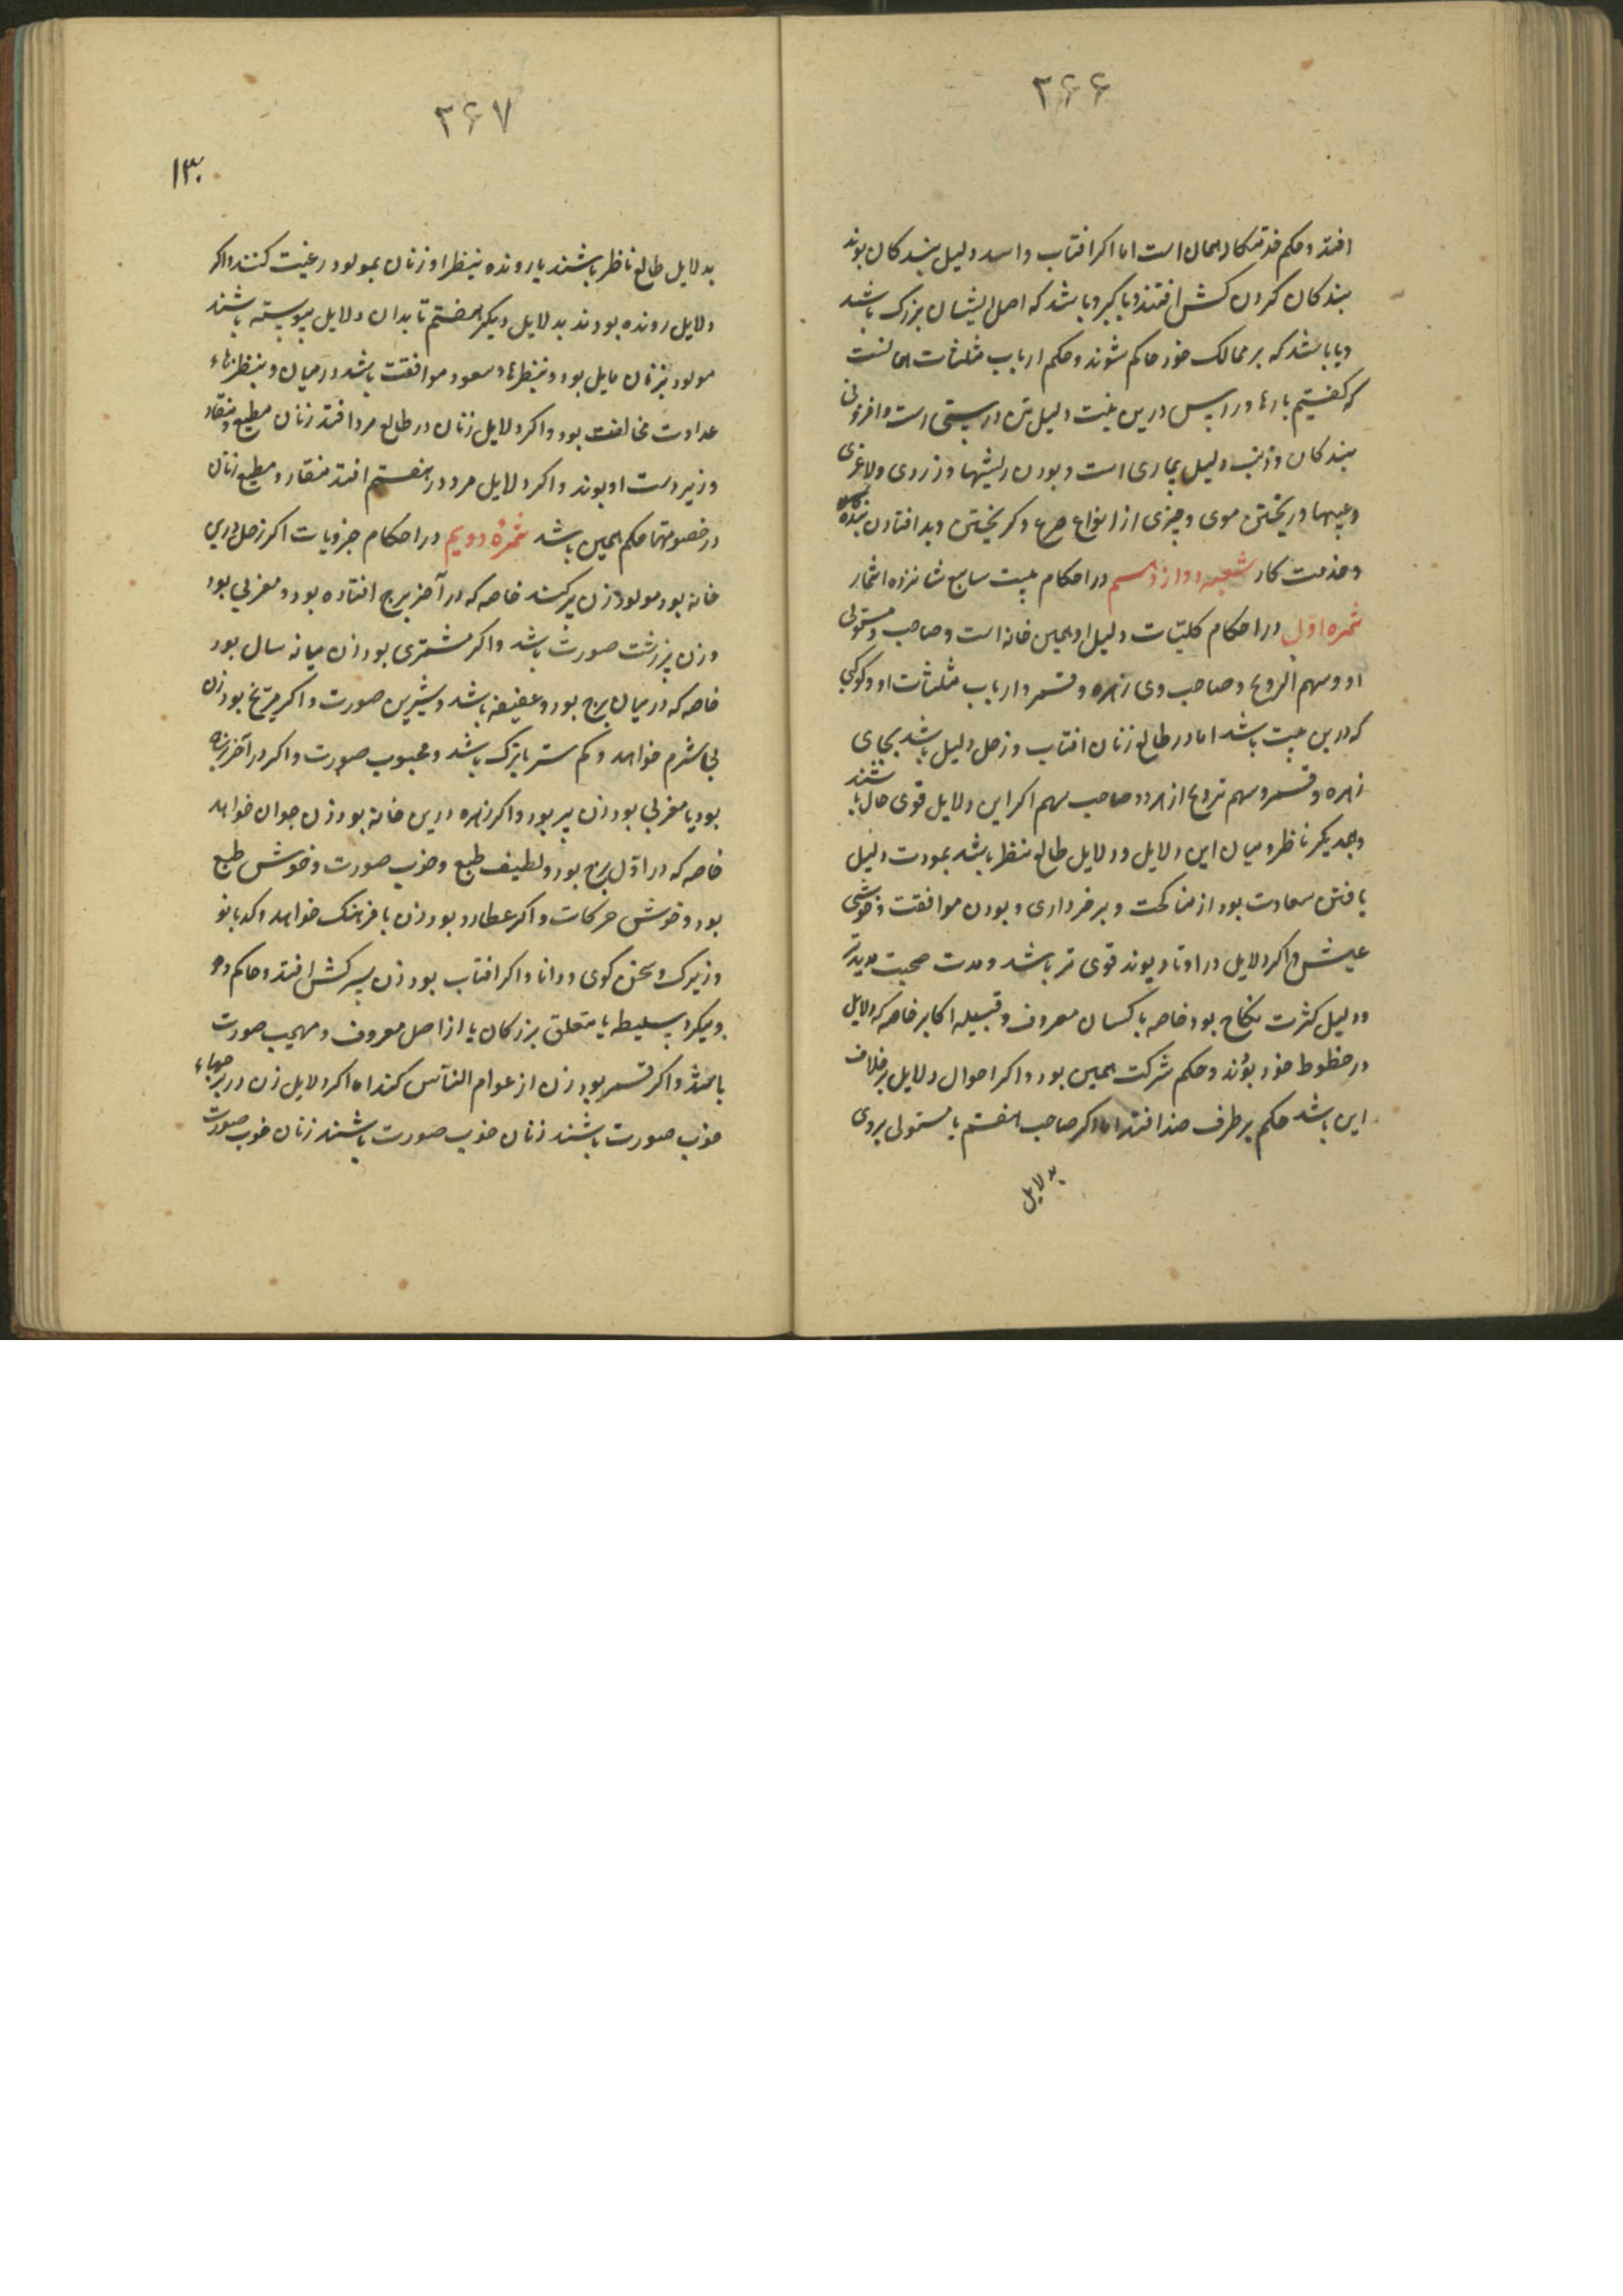 ۲۶۶
افتد و حکم خدمتکار همان است اما اکر افتاب و اسد دلیل بندکان بوند
بندکان کردن کش افتند و با کبر و باشد که اصل ایشان بزرک باشد
و یا باشد که بر ممالک خود حاکم شوند و حکم ارباب مثلثات همانست
که کفتیم بارها و راس درین بیت دلیل تن درستی است و افزونی
بندکان و ذنب دلیل بیماری است و بودن ریشها و زردی و لاغری
و عیبها و ریختن موی و چیزی از انواع صرع و کریختن و بد افتادن بنده
و خدمت کار شعبه دوازدهم در احکام بیت سابع شانزده اثمار
ثمره اول در احکام کلیات دلیل او همین خانه است و صاحب و مستولی
او و سهم الزوج و صاحب وی زهره و قمر و ارباب مثلثات او و کوکبی
که درین بیت باشد اما در طالع زنان افتاب و زحل دلیل باشد بجای
زهره و قمر و سهم تزوج از هر دو صاحب سهم اکر این دلایل قوی حال باشند
و بهمدیکر ناظر و میان این دلایل و دلایل طالع نظر باشد بمودت دلیل
یافتن سعادت بود از مناکحت و برخرداری و بودن موافقت و خوشی
عیش و اکر دلایل در اوتاد بوند قوی تر باشد و مدت صحبت مدیدتر
و دلیل کثرت نکاح بود خاصه با کسان معروف و قبیله اکابر خاصه که دلایل
در حظوظ خود بوند و حکم شرکت همین بود و اکر احوال دلایل برخلاف
این باشد حکم بر طرف ضد افتد اما اکر صاحب هفتم یا مستولی بر وی
بدلایل
۲۶۷
۱۳۰
بدلایل طالع ناظر باشند یا رونده بنظر او زنان بمولود رغبت کنند و اکر
دلایل رونده بودند بدلایل دیکر هفتم تا بدان دلایل پیوسته باشند
مولود بزنان مایل بود و بنظرهاء سعود موافقت باشد در میان و بنظرهاء
عداوت مخالفت بود و اکر دلایل زنان در طالع مرد افتد زنان مطیع و منقاد
و زیر دست او بوند و اکر دلایل مرد در هفتم افتد منقاد و مطیع زنان
در خصومتها حکم همین باشد ثمرهٔ دویم در احکام جزویات اکر زحل درین
خانه بود مولود زن پیر کند خاصه که در آخر برج افتاده بود و مغربی بود
و زن پر زشت صورت باشد و اکر مشتری بود زن میانه سال بود
خاصه که در میان برج بود و عفیفه باشد و شیرین صورت و اکر مریخ بود زن
بی شرم خواهد و کم ستر یا ترک باشد و محبوب صورت و اکر در آخر برج
بود یا مغربی بود زن پیر بود و اکر زهره درین خانه بود زن جوان خواهد
خاصه که در اوّل برج بود و لطیف طبع و خوب صورت و خوش طبع
بود و خوش حرکات و اکر عطارد بود زن با فرهنک خواهد و کدبانو
و زیرک و سخن کوی و دانا و اکر افتاب بود زن سرکش افتد و حاکم
و سلیطه یا متعلق بزرکان یا از اصل معروف و مهیب صورت
باشد و اکر قمر بود زن از عوام النّاس کند اما اکر دلایل زن در برجهاء
خوب صورت باشند زنان خوب صورت باشند زنان خوب صورت